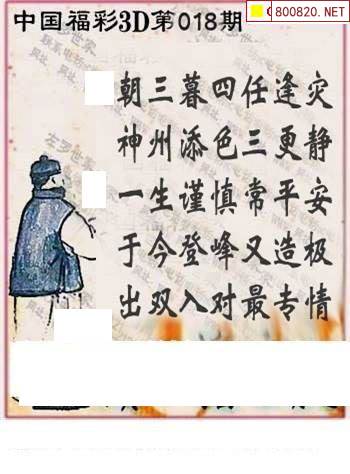 中国福彩3D第018期
800820.NET
朝三暮四任逢灾
神州添色三更静
一生谨慎常平安
于今登峰又造极
出双入对最专情